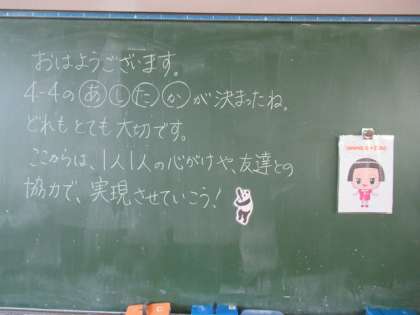 おはようございます。
4-4の あ し た か が 決まったね。
どれもとても大切です。
ここからは、1人1人の心がけや、友達との
協力で、実現させていこう!